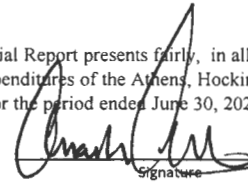 ial Report presents fairly, in all
penditures of the Athens, Hockin
or the period ended June 30, 202
Signature